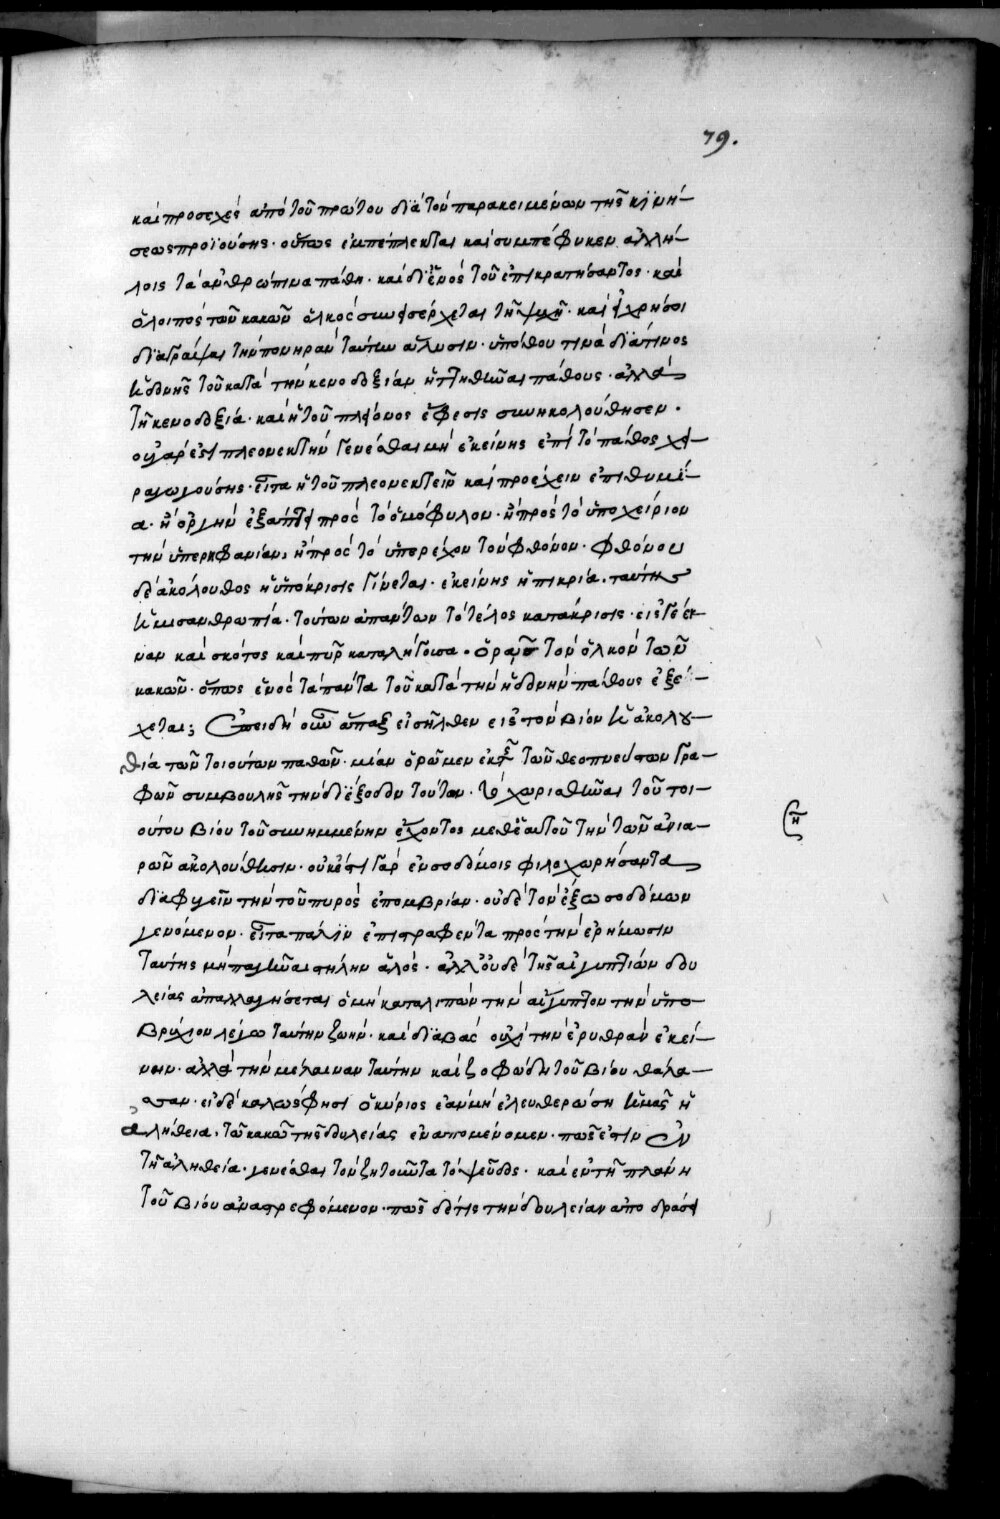 79.
καὶ προσεχὲς ἀπὸ τοῦ πρώτου διὰ τῶν παρακειμένων τῆς κϊνή-
σεως προϊούσης· οὕτως ἐμπέπλεκται καὶ συμπέφυκεν ἀλλή-
λοις τὰ ἀνθρώπινα πάθη· καὶ δι' ἑνὸς τοῦ ἐπικρατήσαντος· καὶ
ὁ λοιπὸς τῶν κακῶν ὁλκὸς συνεισέρχεται τῇ ψυχῇ· καὶ εἰ χρή σοι
διαγράψαι τὴν πονηρὰν ταύτην ἅλυσιν· ὑπόθου τινὰ διά τινος
ἡδονῆς τοῦ κατὰ τὴν κενοδοξίαν ἡττηθῆναι πάθους· ἀλλὰ
τῇ κενοδοξία· καὶ ἡ τοῦ πλείονος ἔφεσις συνηκολούθησεν·
οὐ γάρ ἐστι πλεονέκτην γενέσθαι μὴ ἐκείνης ἐπὶ τὸ πάθος χει-
ραγωγούσης· εἶτα ἡ τοῦ πλεονεκτεῖν καὶ προέχειν ἐπιθυμί-
α· ἢ ὀργὴν ἐξάπτει πρὸς τὸ ὁμόφυλον· ἢ πρὸς τὸ ὑποχείριον
τὴν ὑπερηφανίαν, ἢ πρὸς τὸ ὑπερέχον τὸν φθόνον· φθόνου
δὲ ἀκόλουθος ἡ ὑπόκρισις γίνεται· ἐκείνης ἡ πικρία. ταύτης
ἡ μισανθρωπία· τούτων ἁπάντων τὸ τέλος κατάκρισις· εἰς γέεν
ναν καὶ σκότος καὶ πῦρ καταλήγουσα· ὁρᾷς τὸν ὁλκὸν τῶν
κακῶν· ὅπως ἑνὸς τὰ πάντα τοῦ κατὰ τὴν ἡδονὴν πάθους ἐξέ-
χεται; Ἐπειδὴ οὖν ἅπαξ εἰσῆλθεν εἰς τὸν βίον ἡ ἀκολου-
θία τῶν τοιούτων παθῶν· μίαν ὁρῶμεν ἐκ τῆς τῶν θεοπνεύστων γρα-
φῶν συμβουλῆς τὴν διέξοδον τούτων· τὸ χωρισθῆναι τοῦ τοι-
ούτου βίου τοῦ συνημμένην ἔχοντος μεθ' ἑαυτοῦ τὴν τῶν ἀνια-
ρῶν ἀκολούθησιν· οὐκ ἔστι γὰρ ἐν σοδόμοις φιλοχωρήσαντα
διαφυγεῖν τὴν τοῦ πυρὸς ἐπομβρίαν· οὐδὲ τὸν ἔξω σοδόμων
γενόμενον· εἶτα πάλϊν ἐπιστραφέντα πρὸς τὴν ἐρήμωσιν
ταύτης μὴ παγῆναι στήλην ἁλός· ἀλλ' οὐδὲ τῆς αἰγυπτίων δου
λείας ἀπαλλαγήσεται ὁ μὴ καταλιπὼν τὴν αἴγυπτον τὴν ὑπο-
βρύχιον λέγω ταύτην ζωήν· καὶ διαβὰς οὐχὶ τὴν ἐρυθρὰν ἐκεί-
νην· ἀλλὰ τὴν μέλαιναν ταύτην καὶ ζοφώδη τοῦ βίου θάλα-
σσαν· εἰ δὲ καλῶς φησι ὁ κύριος ἐὰν μὴ ἐλευθερώση ἡμᾶς ἡ
ἀλήθεια, τῶ κακῶ τῆς δουλείας ἐναπομένομεν· πῶς ἐστιν ἐν
τῆ ἀληθεία· γενέσθαι τὸν ζητοῦντα τὸ ψεῦδος· καὶ ἐν τῆ πλάνη
τοῦ βίου ἀναστρεφόμενον· πῶς δέ τις τὴν δουλείαν ἀποδράσει